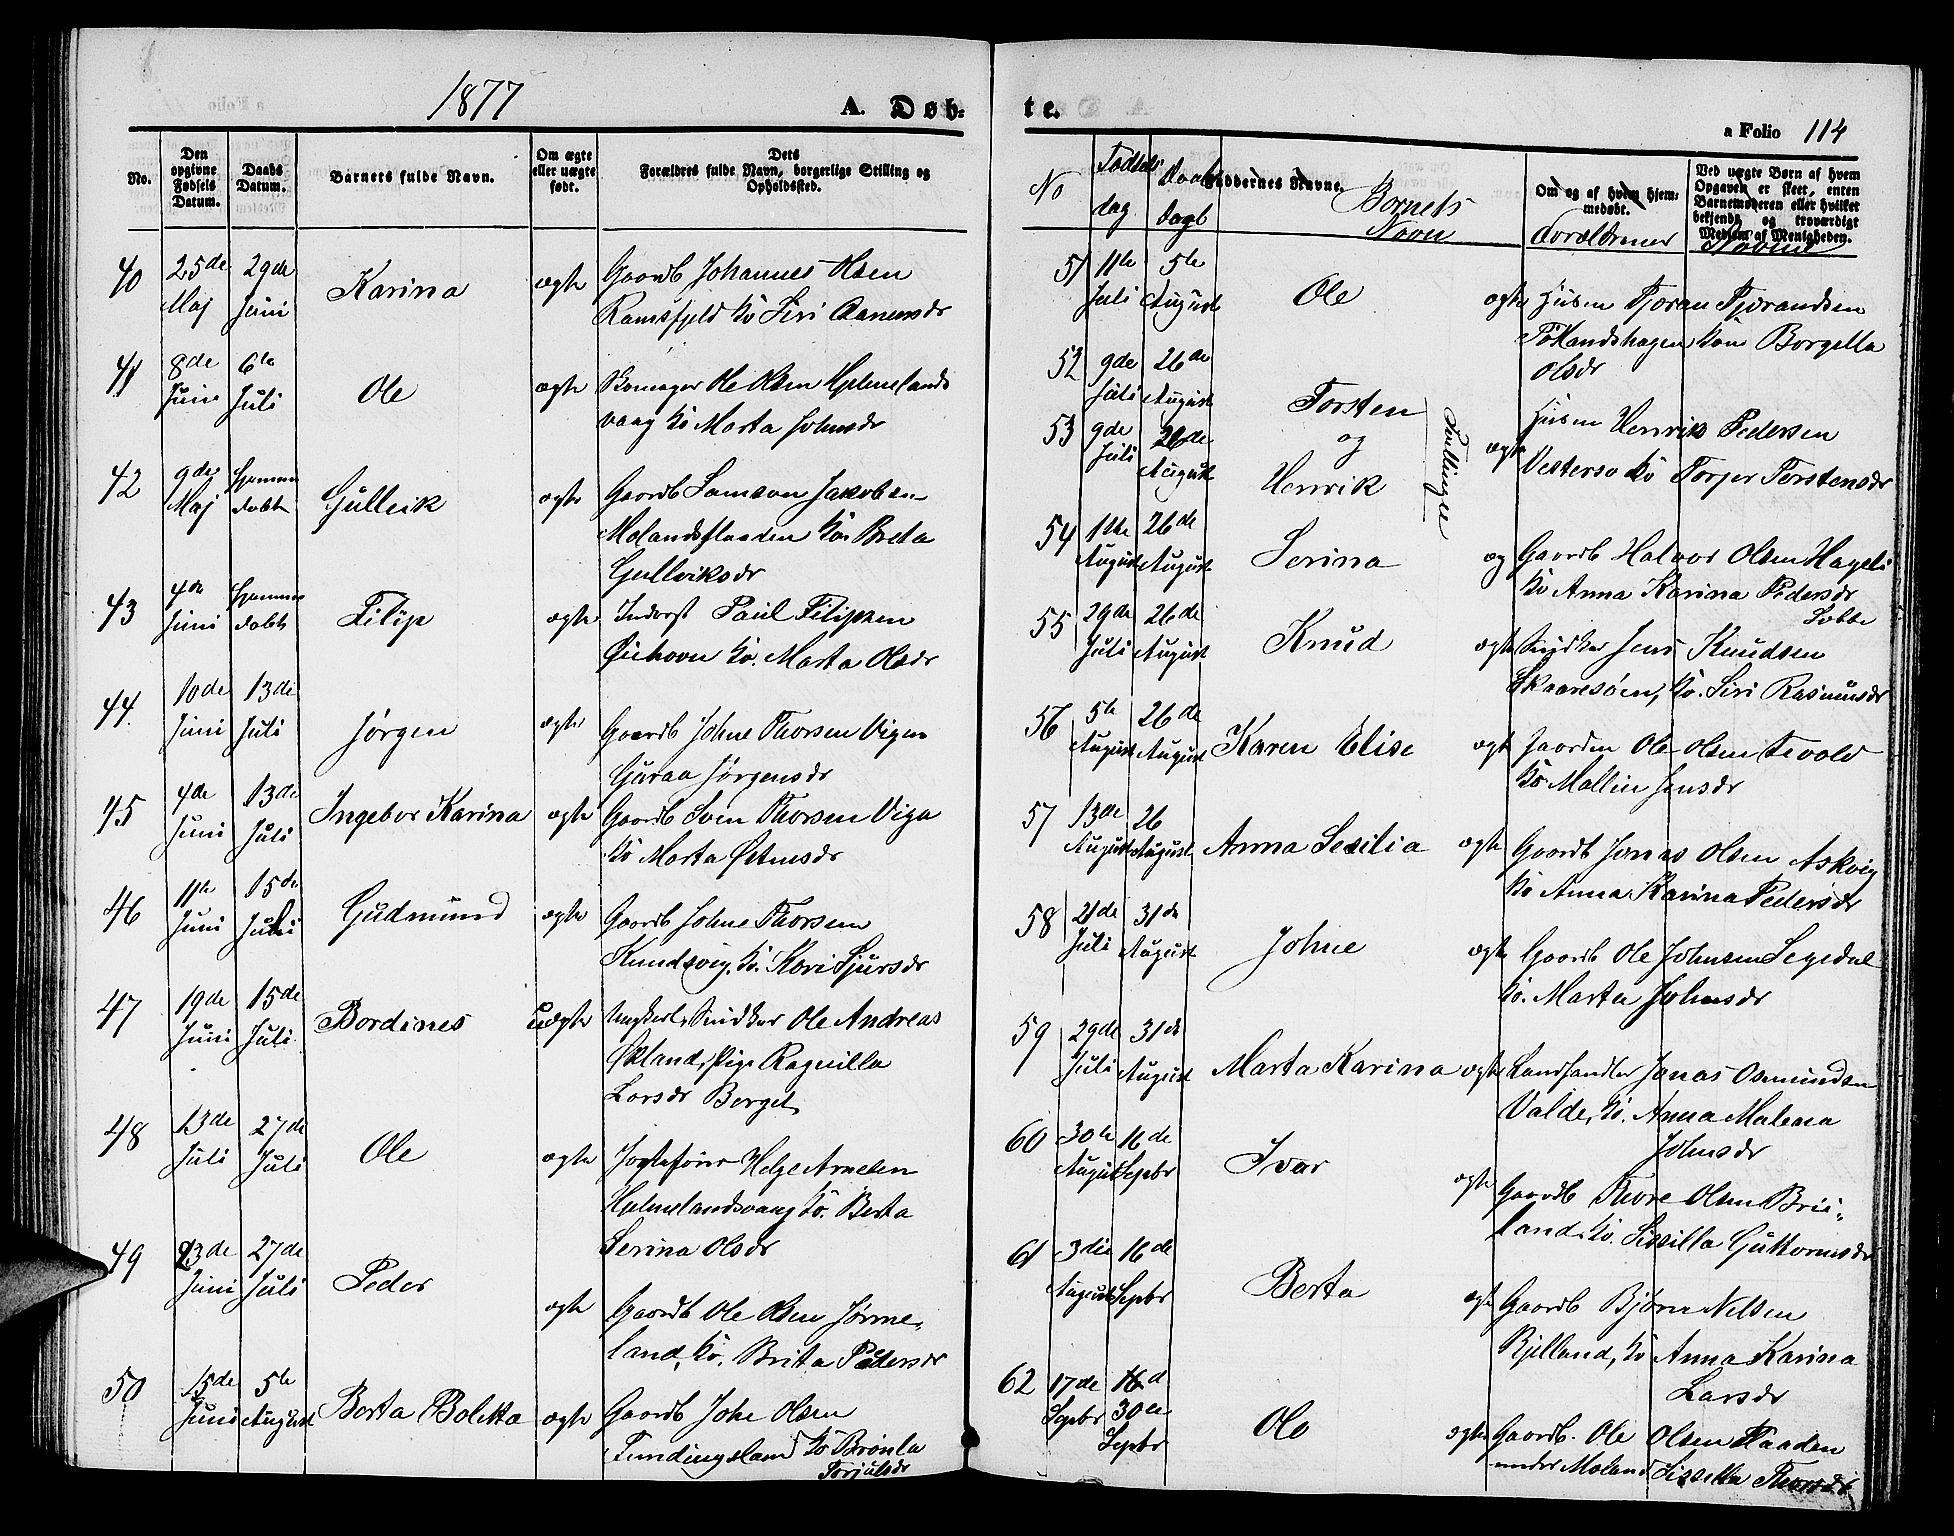 1877
A. Døb-
No.
Den opgivne Fødsels Datum.
Daabs Datum.
Barnets fulde Navn.
Om ægte eller uægte født.
Dets Forældres fulde Navn, borgerlige Stilling og Opholdssted.
40 25de Maj 29de Juni Karina ægte Gaardb Johannes Olsen
Ramsfjeld ko Siri
41 8de Juni 6te Juli Ole ægte Skomager Ole Olsen Helmelands
vaag ko Marta Johnsdr
42 9de Maj Hjemme døbt Gullvik ægte Gaardb Samson Jakobsen
Molandsflaaden ko Breta
Gullviksdr
43 4de Juni Hjemme døbt Filip ægte Inderst Paul Filipsen
ko. Marta Olsdr
44 10de Juni 13de Juli Jørgen ægte Gaardb Johne Thorsen Vigen
Guraa Jørgensdr
45 4de Juni 13de Juli Ingebor Karina ægte Gaardb Sven Thorsen Viga
ko Marta
46 11te Juni 15de Juli Gudmund ægte Gaardb Johne Thorsen
Knudsvig, ko. Kari Sjursdr
47 19de Juni 15de Juli Bordines uægte Ungkarl, Snidker Ole Andreas
Økland, Pige Ragnilla
Larsdr Berget
48 13de Juli 27de Juli Ole ægte Helge Arnesen
Helmelandsvaag ko. Berta
Serina Olsdr
49 23de Juni 27de Juli Peder ægte Gaardb Ole Olsen Jørme-
land, ko. Brita Pedersdr
50 15de Juni 5te August Berta Boletta ægte Gaardb Johe Olsen
Fundingsland ko Brønla
Torjulsdr
te.
a Folio 114
No
Fødsels dag
Daab dag
Faddernes Navne.
Børnets Navn
Om og af hvem hjemmedøbt.
Forældrenes Navne
Ved uægte Børn af hvem Opgaven er skeet, enten Barnemoderen eller hvilket bekjendt og troværdigt Medlem af Menigheden.
51 11te Juli 5te August Ole ægte Husm Tjoran Tjørandsen
Folkandshagen, kone Borgella
Olsdr
52 9de Juli 26de August Torsten
og Tvillinger
53 9de Juli 26de August Henrik ægte Husm Henrik Pedersen
Vestersø ko Torjer Torstensdr
54 1ste August 26de August Serina æg Gaardb Halvor Olsen Hageli
ko Anna Karina Pedersdr
55 29de Juli 26de August Knud ægte Snidker Jens Knudsen
Skaaresøen, ko. Siri Rasmusdr
56 5te August 26de August Karen Elise ægt Ole Olsen Tevold
ko Mallin Jensdr
57 13de August 26 August Anna Sesilia ægte Gaardb Jonas Olsen Askvig
ko Anna Karina Pedersdr
58 21de Juli 31de August Johne ægte Gaardb Ole Johnsen Segedal
ko. Marta Johnsdr
59 29de Juli 31de August Marta Karina ægte Landhandler Jonas Osmundsen
Valde, ko. Anna Malena
Johnsdr
60 30te August 16de Sepbr Ivar ægte Gaardb Thore Olsen Brii-
land, ko. Sissilla Guttormsdr
61 3die August 16de Sepbr Berta ægt Gaardb Bjørn Nelsen
Kjelland, ko Anna Karina
Larsdr
62 17de Sepbr 30te Sepbr Ole ægte Gaardb. Ole Olsen Flaaden
under Moland Sissella Thorsdr